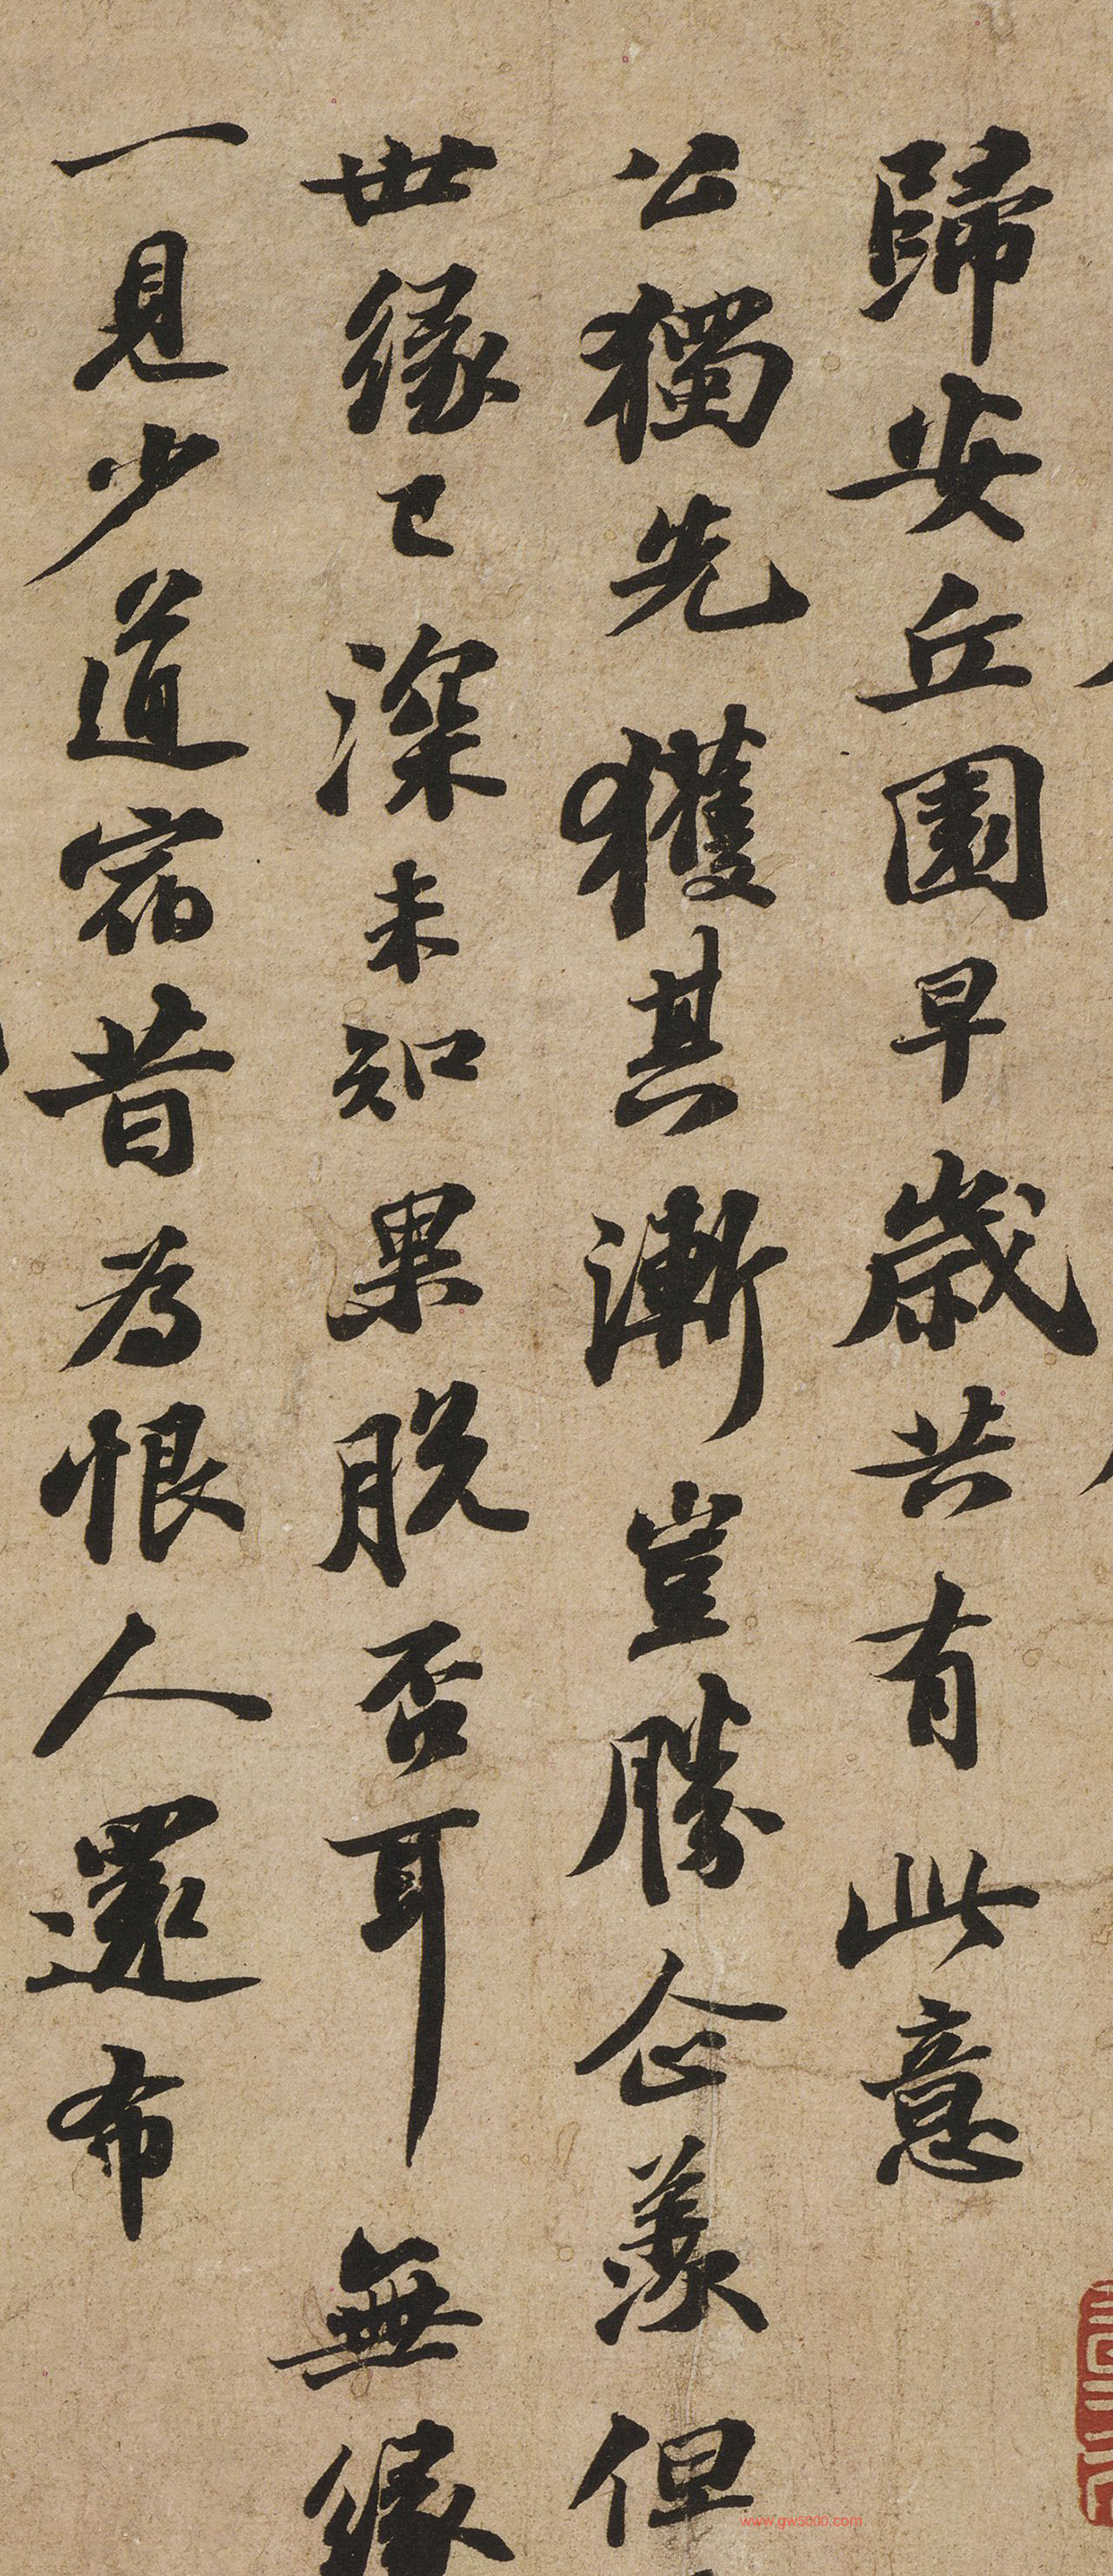 歸安丘園早歲共有此意
公獨先獲其漸豈勝企羨但
世緣已深未知果脫否耳無緣
一見少道宿昔為恨人還布
www.gw5000.com